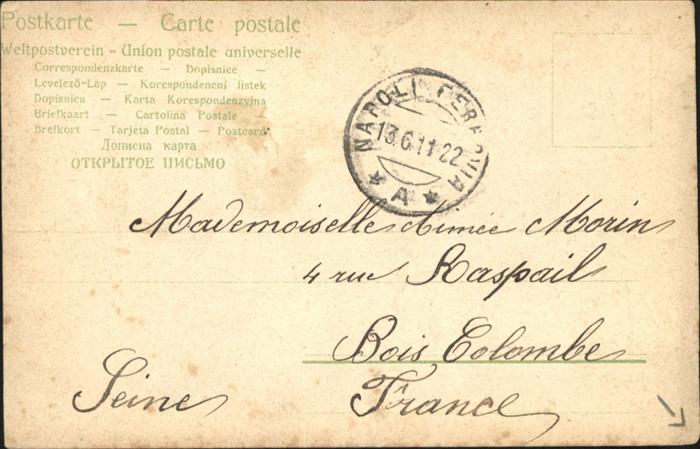 Postkarte — Carte postale
Weltpostverein - Union postale universelle
Correspondenzkarte — Dopisnice —
Levelező-Lap — Korespondencni listek
Dopisnica — Karta Korespondenzyjna
Briefkaart — Cartolina Postale —
Brefkort — Tarjeta Postal — Postcard
Дописна карта
ОТКРЫТОЕ ПИСЬМО
NAPOLI FERROVIA
13.6.11-22
* A *
Mademoiselle Aimée Morin
4 rue Raspail
Bois Colombe
Seine France